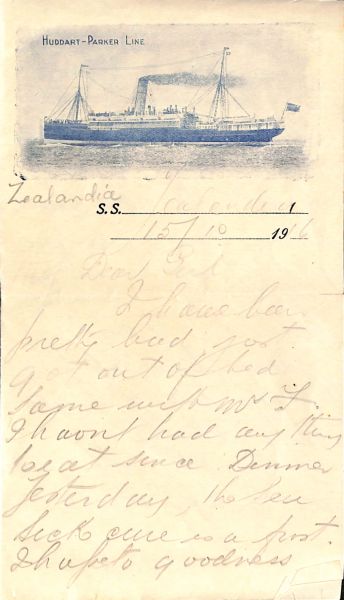 HUDDART-PARKER LINE
Zealandia
S.S. Zealandia
15/10 1916
Dear
I have been
pretty bad just
got out of bed
same with Mrs F.
I havnt had anything
to eat since Dinner
yesterday, the sea
sick cure is a frost.
I hope to goodness